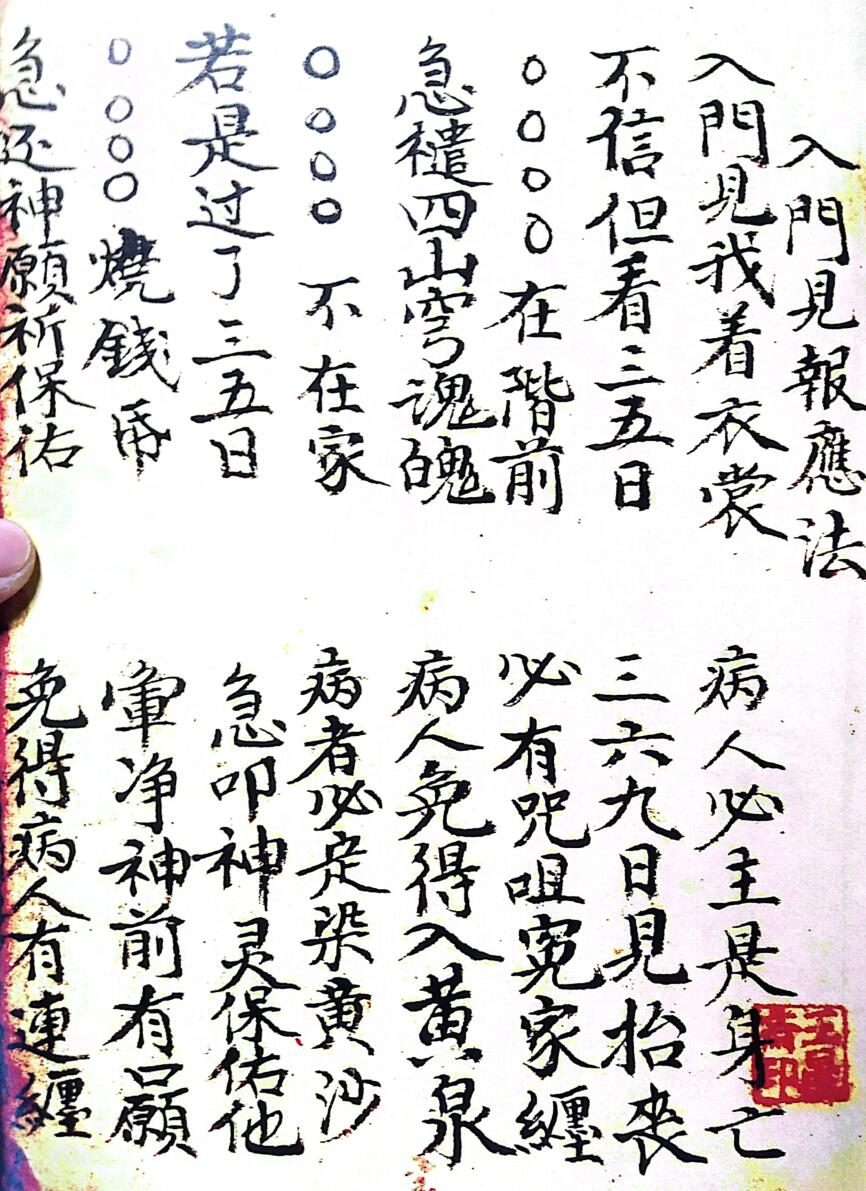 入門見報應法
入門見我着衣裳 病人必主是身亡
不信但看三五日 三六九日見抬丧
○○○○在階前 必有咒咀冤家纏
急四山穹魂魄 病人免得入黄泉
○○○○不在家 病者必定染黄沙
若是过了三五日 急叩神灵保佑他
○○○○燒錢帋 净神前有口願
急还神願祈保佑 免得病人有連纏